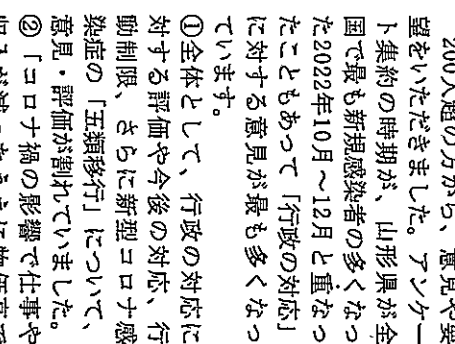 200人超の方から、意見や要
望をいただきました。アンケー
ト集約の時期が、山形県が全
国で最も新規感染者の多くなっ
た2022年10月～12月と重なっ
たこともあって「行政の対応」
に対する意見が最も多くなっ
ています。
①全体として、行政の対応に
対する評価や今後の対応、行
動制限、さらに新型コロナ感
染症の「五類移行」について、
意見・評価が割れていました。
②「コロナ禍の影響で仕事や
収入が減ったうえに物価高で